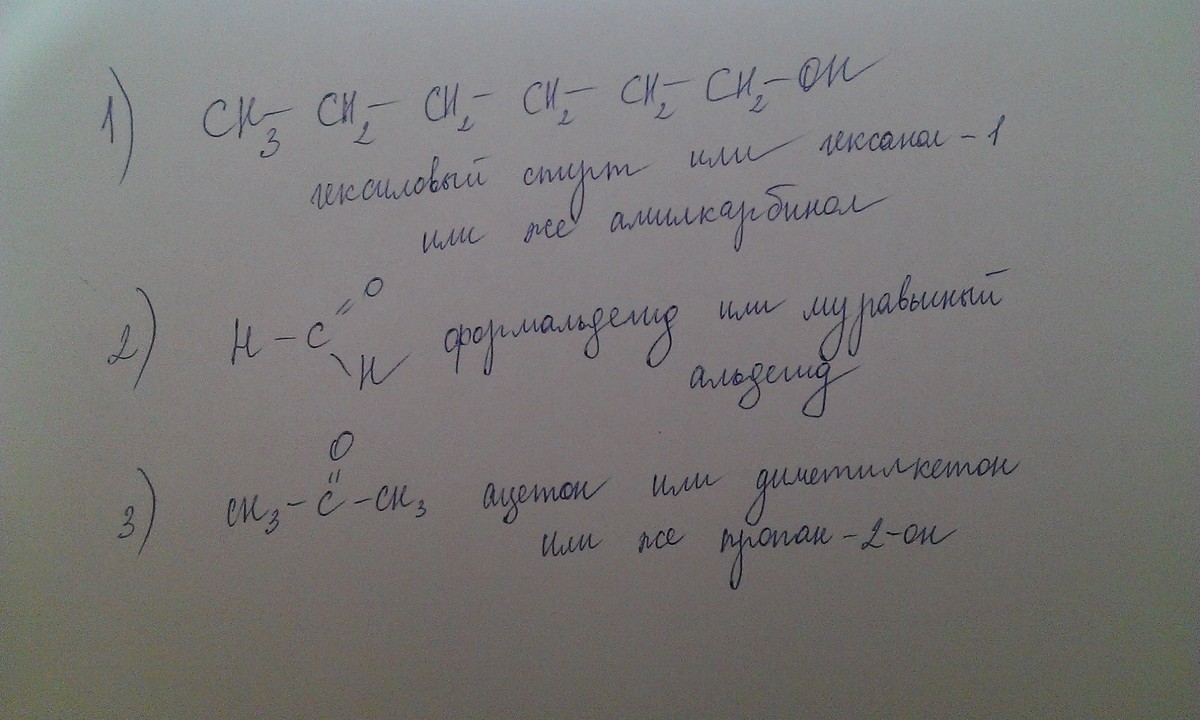 1) CH₃ - CH₂ - CH₂ - CH₂ - CH₂ - CH₂ - OH
гексиловый спирт или гексанол - 1
или же амилкарбинол
O
2) H - C = формальдегид или муравьиный
H альдегид
O
3) CH₃ - C - CH₃ ацетон или диметилкетон
или же пропан - 2 - он